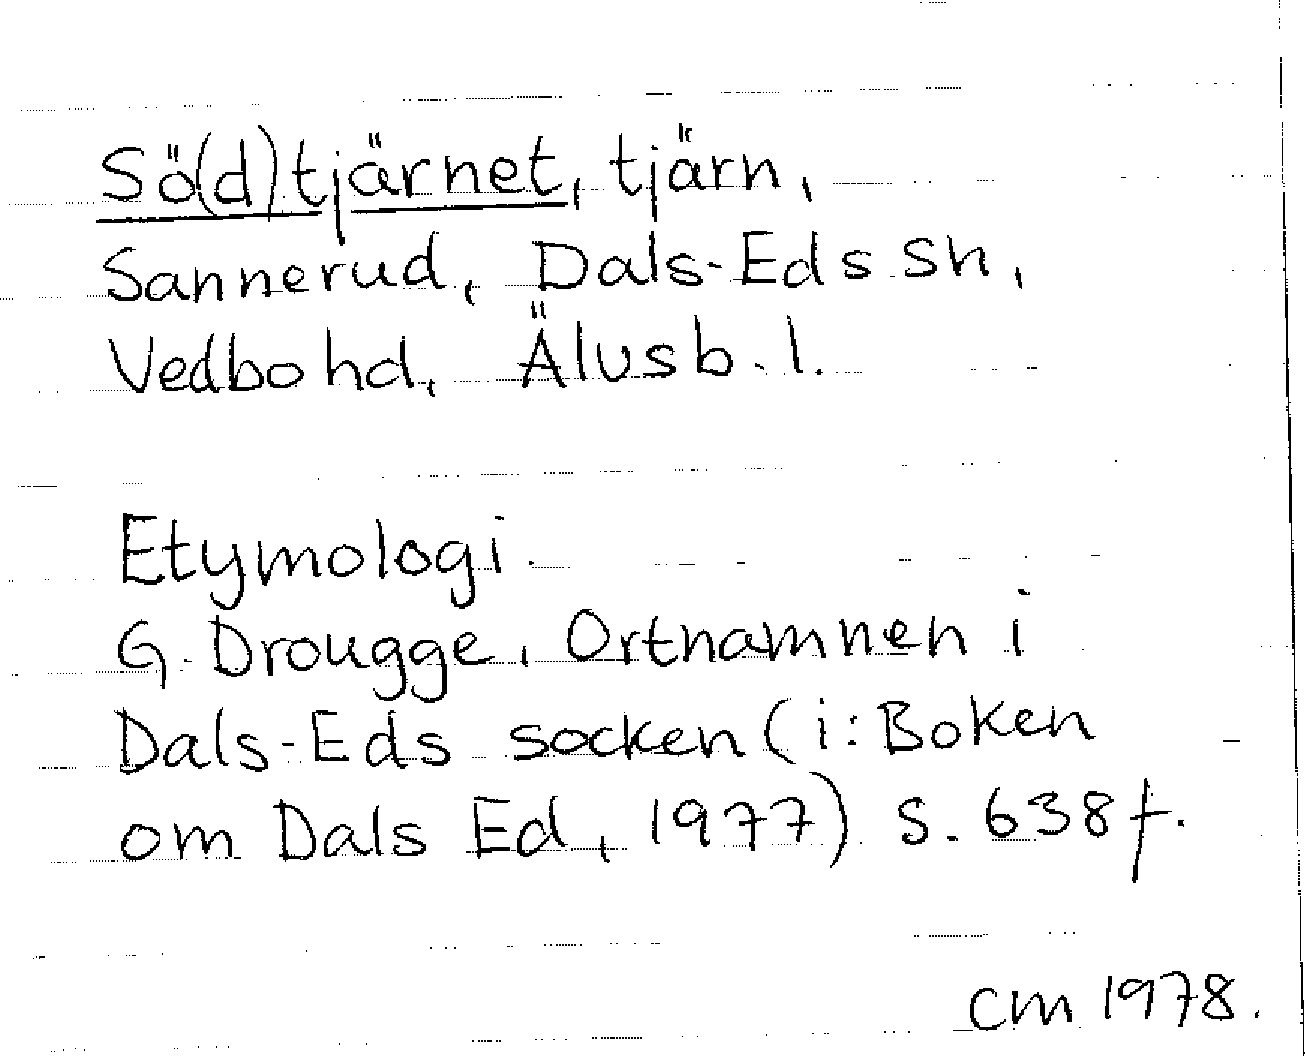 Sö(d)tjärnet, tjärn,
Sannerud, Dals-Eds sn,
Vedbo hd, Älvsb. l.
Etymologi.
G. Drougge, Ortnamnen i
Dals-Eds socken (i: Boken
om Dals Ed, 1977) s. 638 f.
cm 1978.